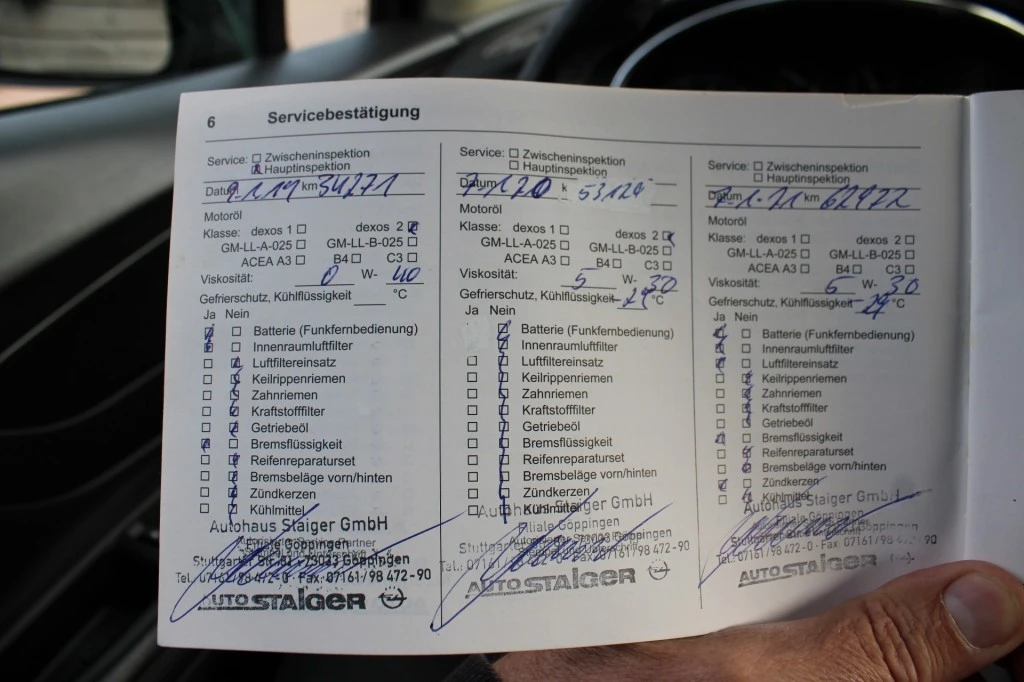 6 Servicebestätigung
Service: ☐ Zwischeninspektion
☒ Hauptinspektion
Datum 9.1.19 km 34271
Motoröl
Klasse: dexos 1 ☐ dexos 2 ☒
GM-LL-A-025 ☐ GM-LL-B-025 ☐
ACEA A3 ☐ B4 ☐ C3 ☐
Viskosität: 0 W- 40
Gefrierschutz, Kühlflüssigkeit °C
Ja Nein
☒ ☐ Batterie (Funkfernbedienung)
☒ ☐ Innenraumluftfilter
☐ ☒ Luftfiltereinsatz
☐ ☒ Keilrippenriemen
☐ ☒ Zahnriemen
☐ ☒ Kraftstofffilter
☐ ☒ Getriebeöl
☒ ☐ Bremsflüssigkeit
☐ ☒ Reifenreparaturset
☐ ☒ Bremsbeläge vorn/hinten
☐ ☒ Zündkerzen
☐ ☒ Kühlmittel
Autohaus Staiger GmbH
Filiale Göppingen
Stuttgarter Str. 73033 Göppingen
Tel. 07161/98 472-0 · Fax: 07161/98 472-90
AUTO STAIGER
Service: ☐ Zwischeninspektion
☐ Hauptinspektion
Datum 7.1.20 k 53124
Motoröl
Klasse: dexos 1 ☐ dexos 2 ☒
GM-LL-A-025 ☐ GM-LL-B-025 ☐
ACEA A3 ☐ B4 ☐ C3 ☐
Viskosität: 5 W- 30
Gefrierschutz, Kühlflüssigkeit -29 °C
Ja Nein
☒ Batterie (Funkfernbedienung)
☒ Innenraumluftfilter
☐ ☒ Luftfiltereinsatz
☐ ☒ Keilrippenriemen
☐ ☒ Zahnriemen
☐ ☒ Kraftstofffilter
☐ ☒ Getriebeöl
☐ ☒ Bremsflüssigkeit
☐ ☒ Reifenreparaturset
☐ ☒ Bremsbeläge vorn/hinten
☐ ☒ Zündkerzen
☐ ☒ Kühlmittel
Autohaus Staiger GmbH
Filiale Göppingen
07161/98 472-90
AUTO STAIGER
Service: ☐ Zwischeninspektion
☐ Hauptinspektion
Datum 7-1-21 km 62972
Motoröl
Klasse: dexos 1 ☐ dexos 2 ☐
GM-LL-A-025 ☐ GM-LL-B-025 ☐
ACEA A3 ☐ B4 ☐ C3 ☐
Viskosität: 5 W- 30
Gefrierschutz, Kühlflüssigkeit -29 °C
Ja Nein
☒ ☐ Batterie (Funkfernbedienung)
☒ ☐ Innenraumluftfilter
☒ ☐ Luftfiltereinsatz
☐ ☒ Keilrippenriemen
☐ ☒ Zahnriemen
☐ ☒ Kraftstofffilter
☐ ☒ Getriebeöl
☒ ☐ Bremsflüssigkeit
☐ ☒ Reifenreparaturset
☐ ☒ Bremsbeläge vorn/hinten
☒ ☐ Zündkerzen
☐ ☒ Kühlmittel
Autohaus Staiger GmbH
Filiale Göppingen
Tel. 07161/98 472-0 · Fax: 07161/98 472-90
AUTO STAIGER